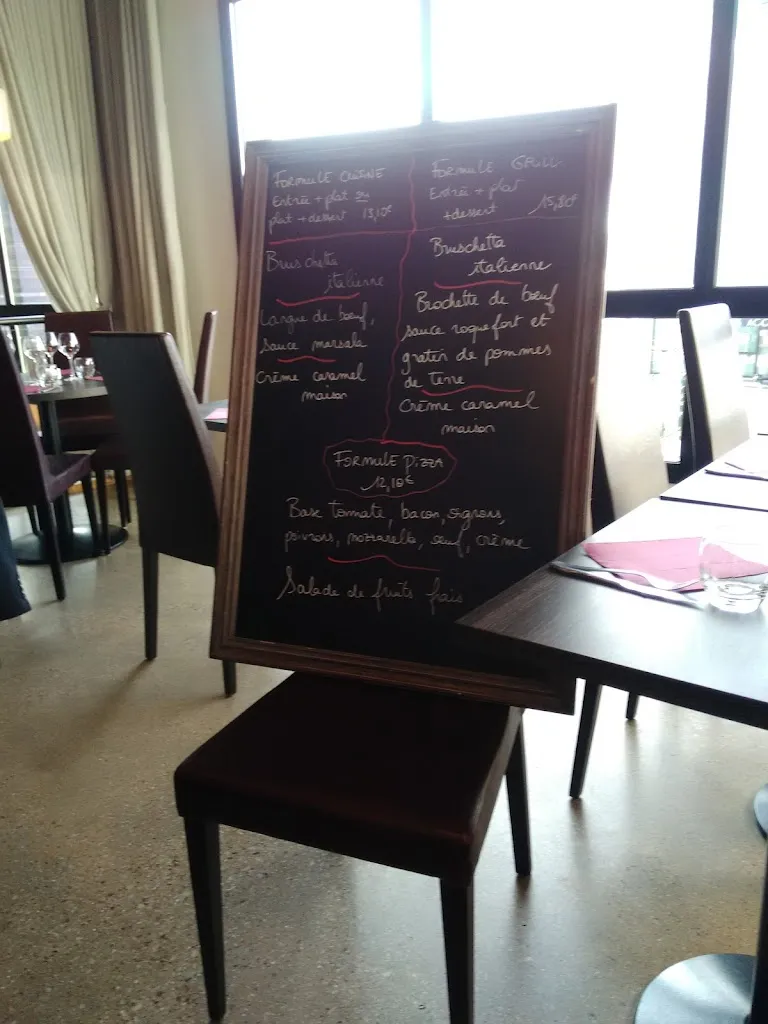 FORMULE CUISINE
Entrée + plat ou
plat + dessert 13,10€
Bruschetta
italienne
Langue de bœuf,
sauce marsala
Crème caramel
maison
FORMULE GRILL
Entrée + plat
+ dessert 15,80€
Bruschetta
italienne
Brochette de bœuf
sauce roquefort et
gratin de pommes
de terre
Crème caramel
maison
FORMULE PIZZA
12,10€
Base tomate, bacon, oignons,
poivrons, mozzarella, œuf, crème
Salade de fruits frais